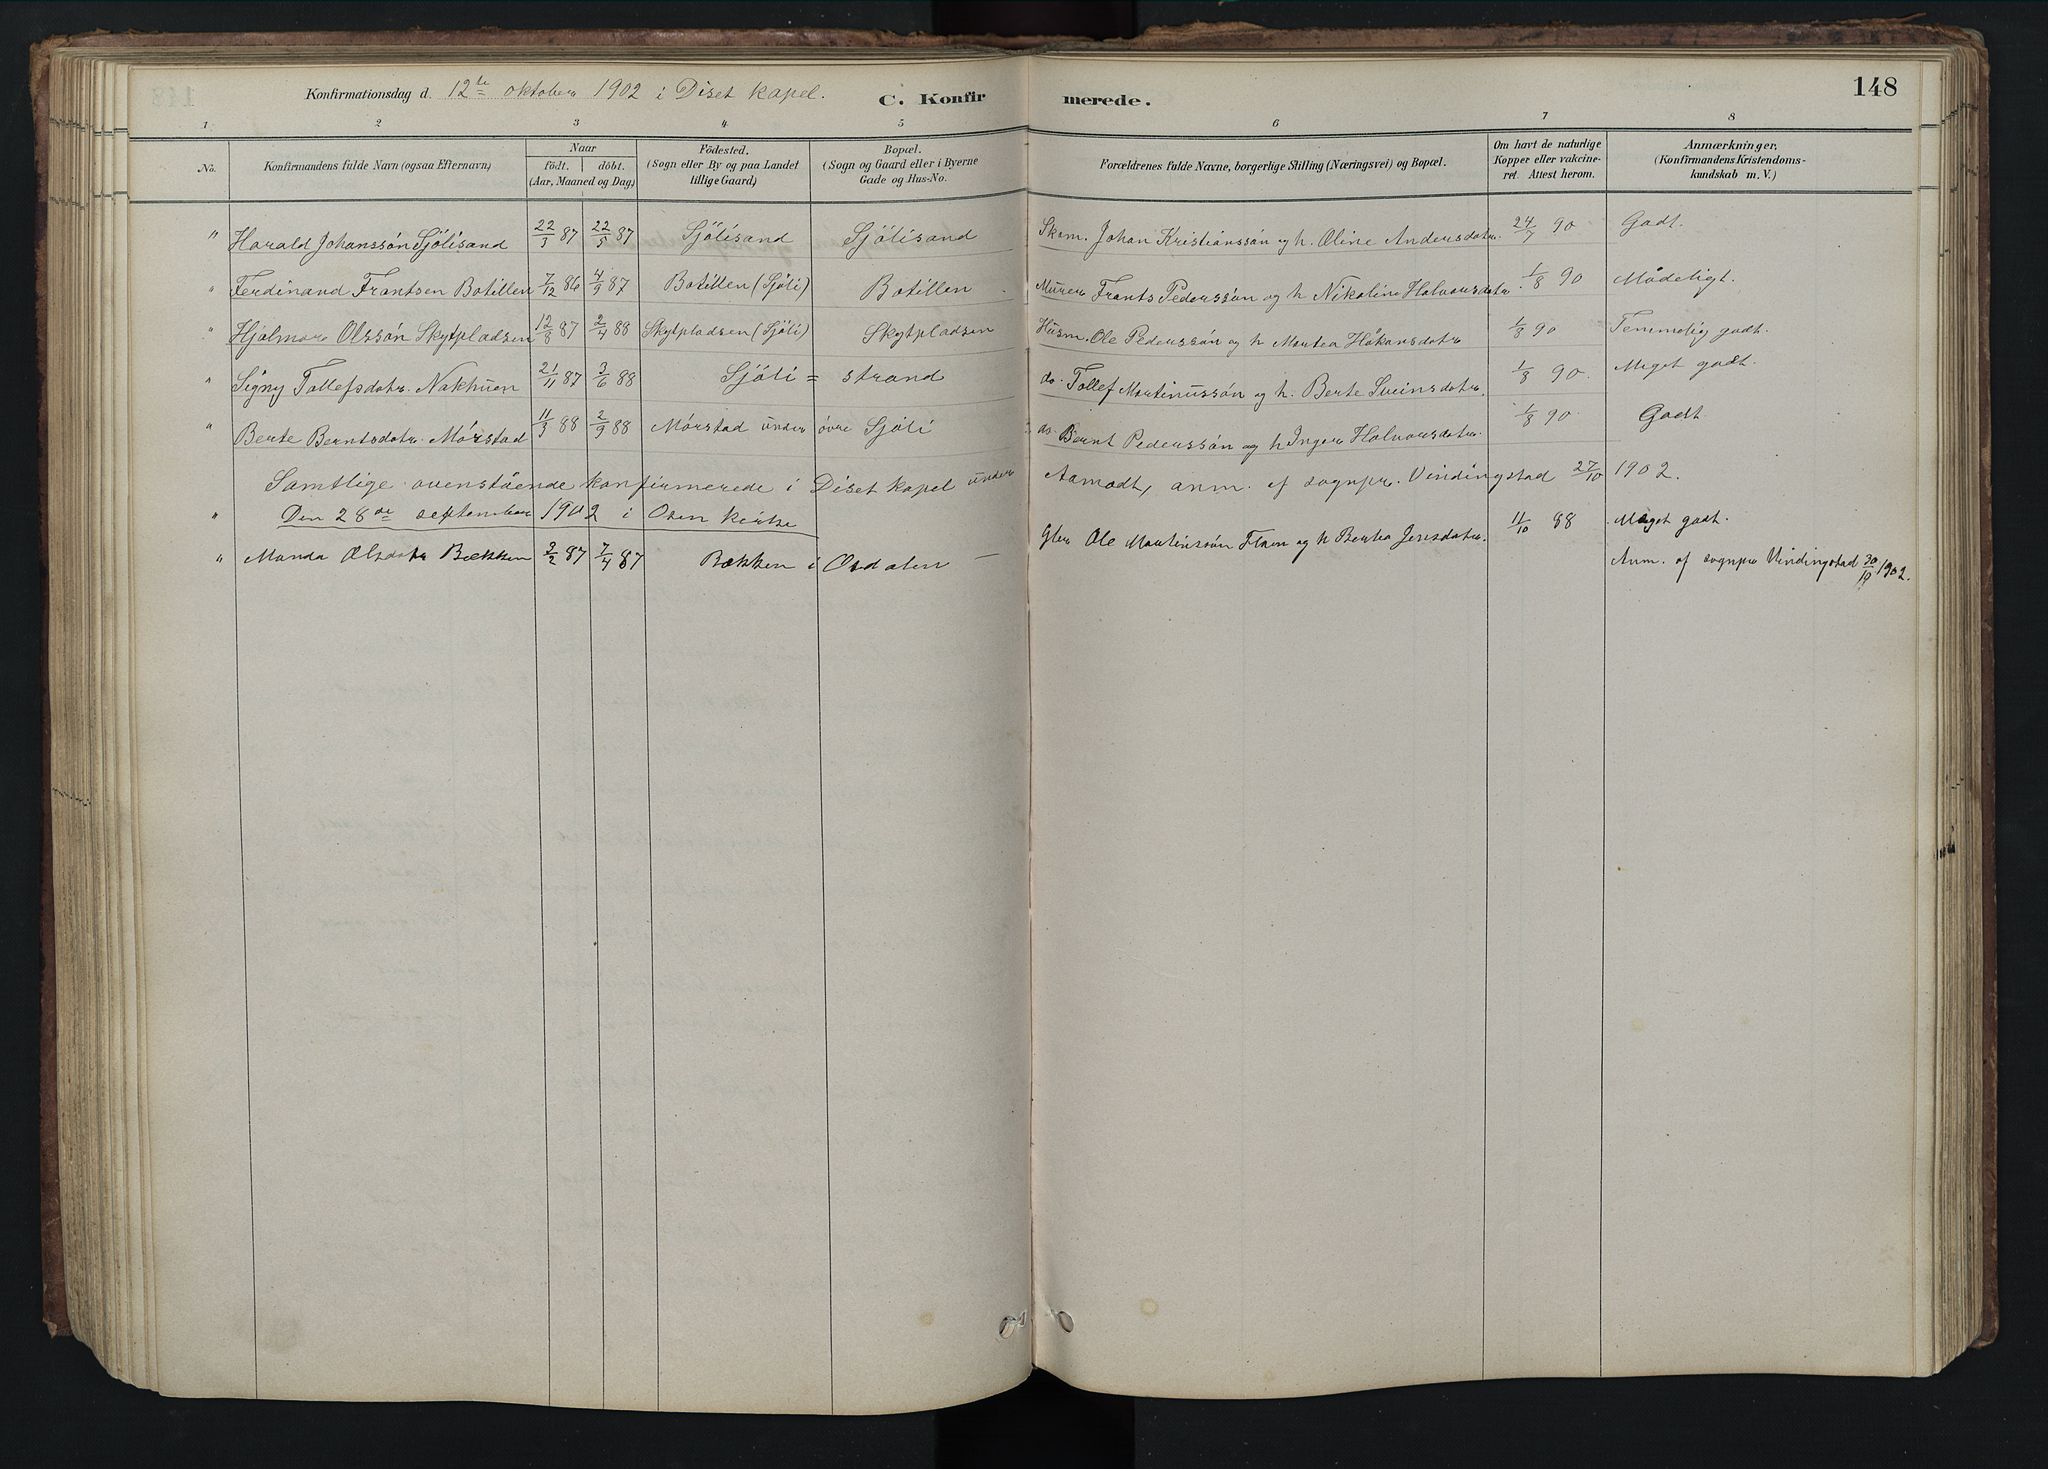 148
Konfirmationsdag d. 12te oktober 1902 i Diset kapel. C. Konfirmerede.
1 2 3 4 5 6 7 8
No. Konfirmandens fulde Navn (ogsaa Efternavn) Naar født. døbt. (Aar, Maaned og Dag) Fødested. (Sogn eller By og paa Landet tillige Gaard) Bopæl. (Sogn og Gaard eller i Byerne Gade og Hus-No. Forældrenes fulde Navne, borgerlige Stilling (Næringsvei) og Bopæl. Om havt de naturlige Kopper eller vakcineret. Attest herom. Anmærkninger, (Konfirmandens Kristendomskundskab m. V.)
" Harald Johanssøn Sjölisand 22/3 87 22/5 87 Sjölisand Sjölisand Skom. Johan Kristianssøn og h. Oline Andersdatr. 24/7 90 Godt.
" Ferdinand Frantsen Botillen 7/12 86 4/9 87 Botillen (Sjöli) Botillen Murer Frants Pederssøn og h Nikoline Halvorsdatr. 1/8 90 Mådeligt.
" Hjalmar Olssøn Skytpladsen 12/8 87 2/4 88 Skytpladsen (Sjöli) Skytpladsen Husm. Ole Pederssøn og h Martea Håkonsdatr 1/8 90 Temmelig godt.
" Signy Tollefsdatr. Nakhuen 21/11 87 3/6 88 Sjöli = strand do. Tollef Martinussøn og h. Berte Sveinsdatr. 1/8 90. Meget godt.
" Berte Berntsdatr. Mørstad 11/3 88 2/9 88 Mørstad under øvre Sjöli do. Bernt Pederssøn og h Inger Halvorsdatr. 1/8 90 Godt.
Samtlige ovenstående konfirmerede i Diset kapel under Aamodt, anm. af sognpr. Vindingstad 27/10 1902.
" Den 28de september 1902 i Osen kirke
" Manda Olsdatr Bækken 3/2 87 7/4 87 Bækken i Osdalen — Ole Martinssøn og h Berthe Jensdatr. 11/10 88 Meget godt.
Anm. af sognpr Vindingstad 30/10 1902.